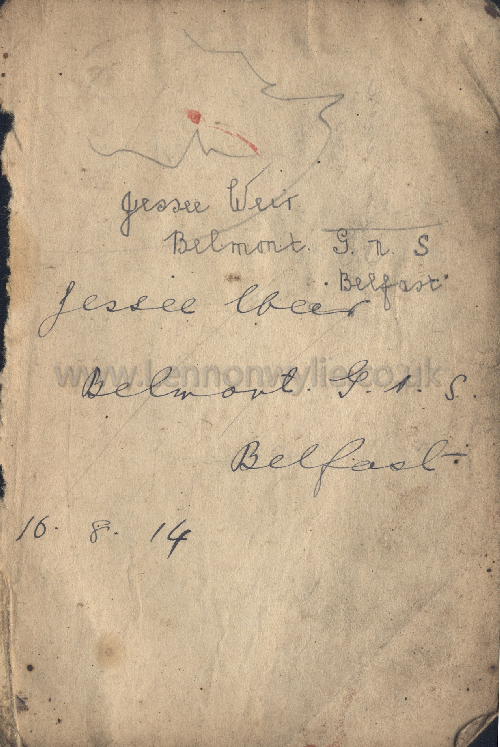 Jessee Weir
Belmont. G. n. S
Belfast
Jessee Weir
www.lennonwylie.co.uk
Belmont G. n. S.
Belfast.
16. 8. 14